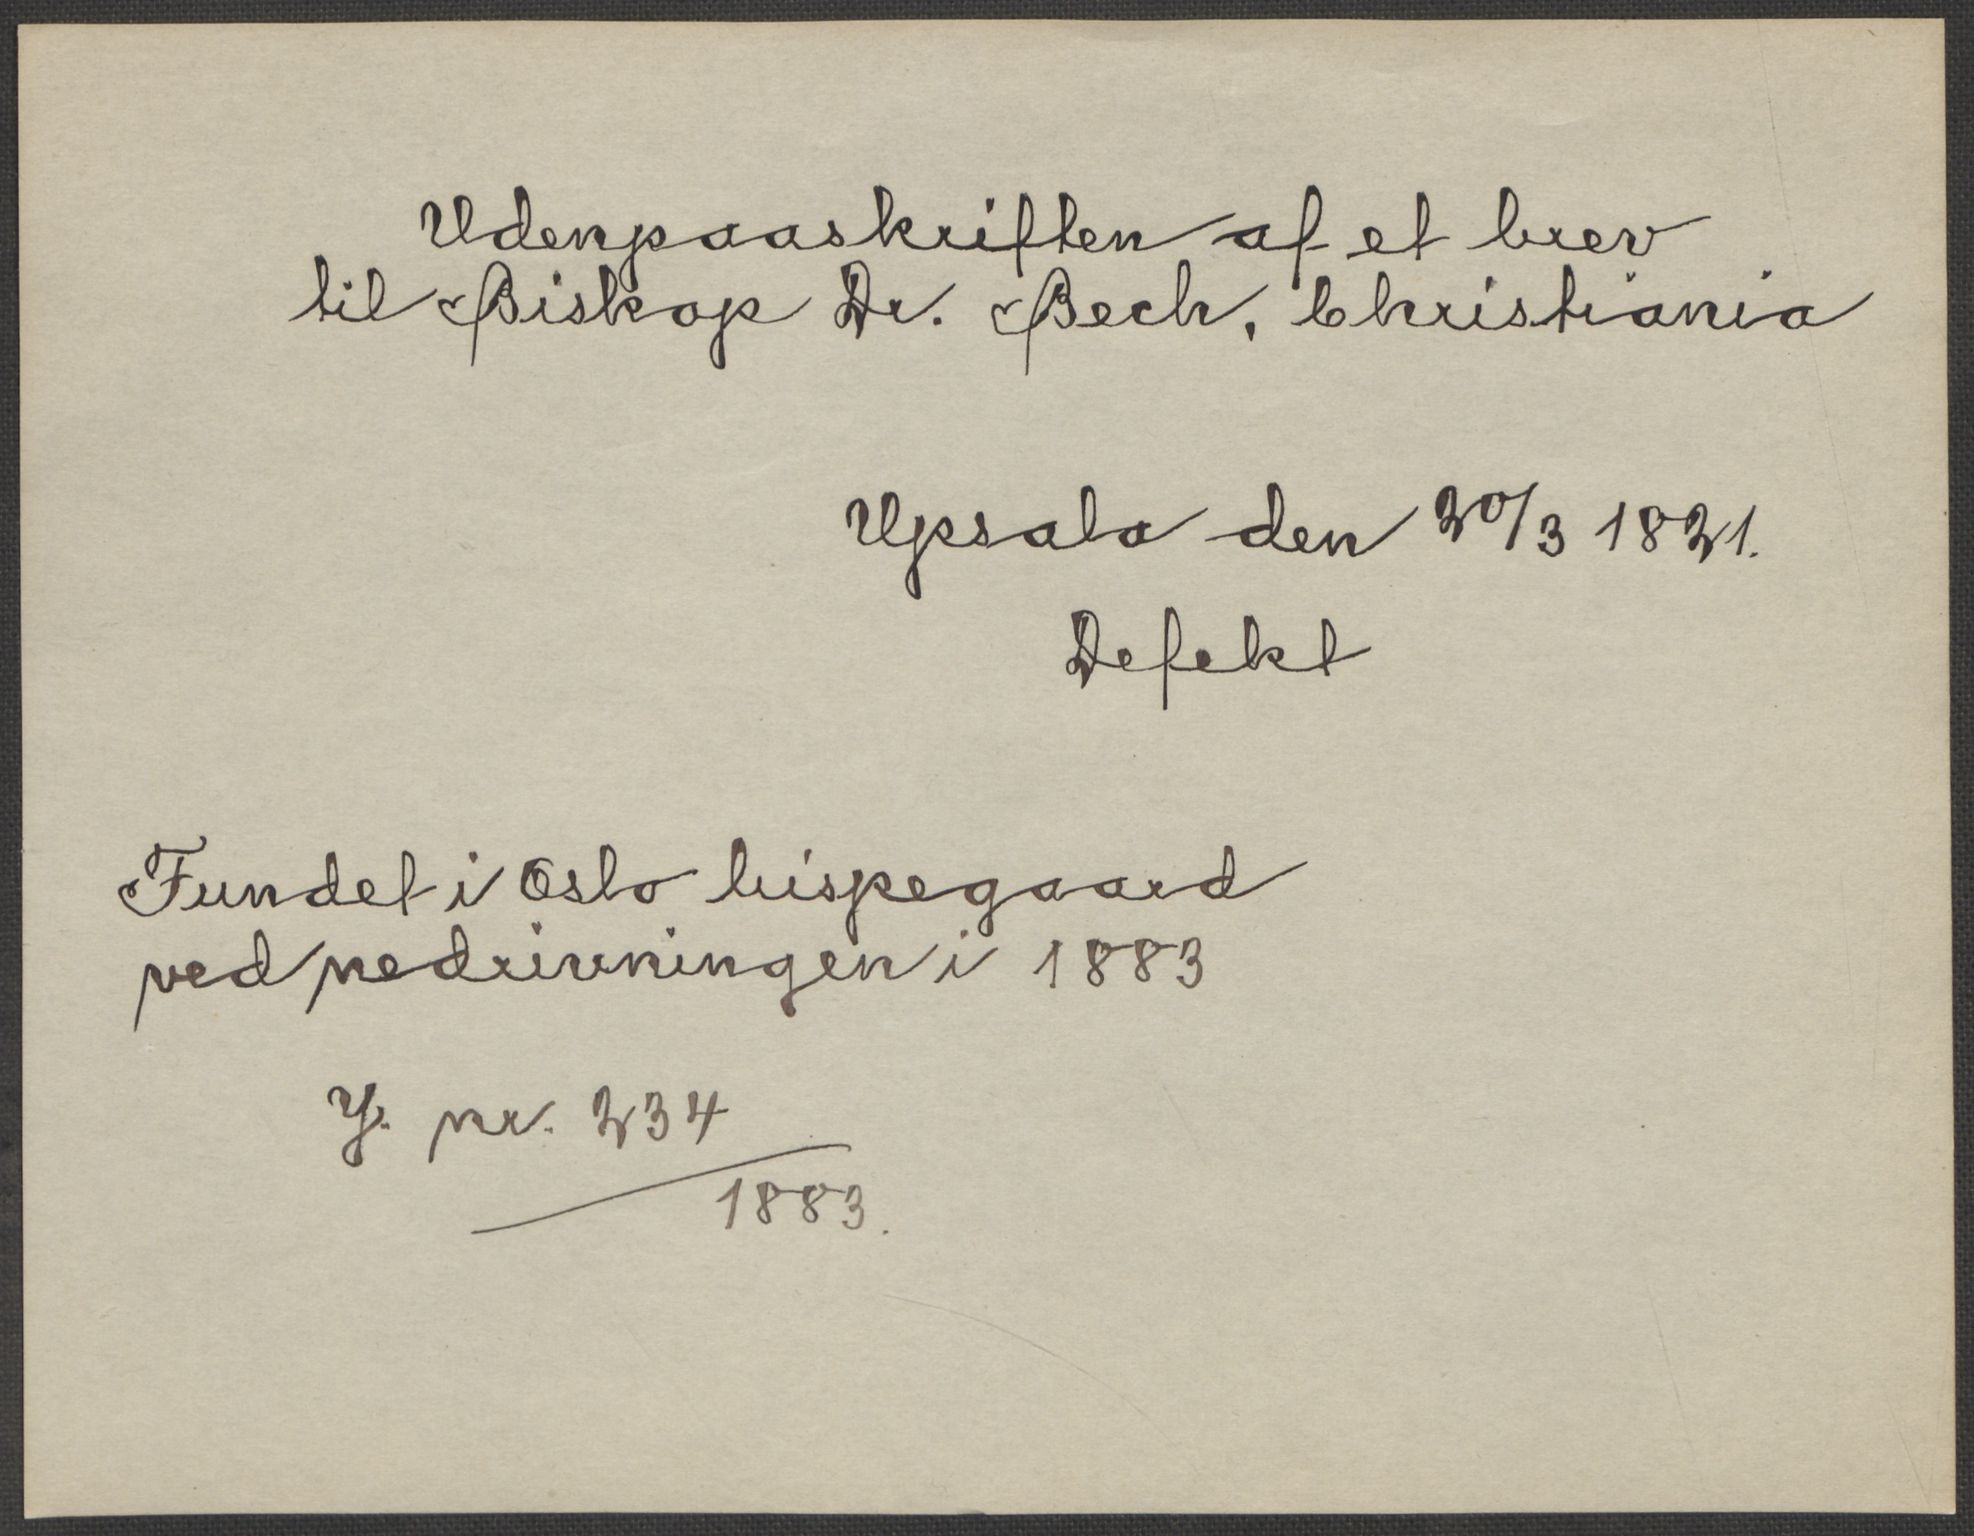 Udenpaaskriften af et brev
til Biskop Dr. Bech, Christiania
Upsala den 20/3 1821.
Defekt
Fundet i Oslo bispegaard
ved nedrivningen i 1883
J. nr. 234
1883.